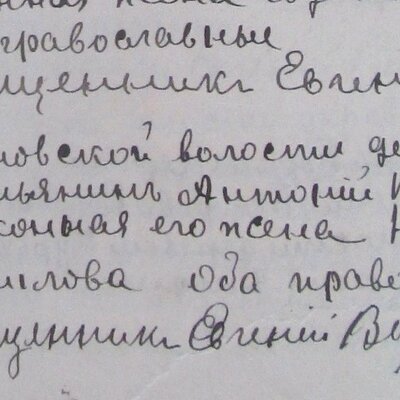 ная жена его
православные
щенникъ Евген
новской волости де
тьянинъ Антоній
конная его жена Н
илова оба право
щенникъ Евгеній В